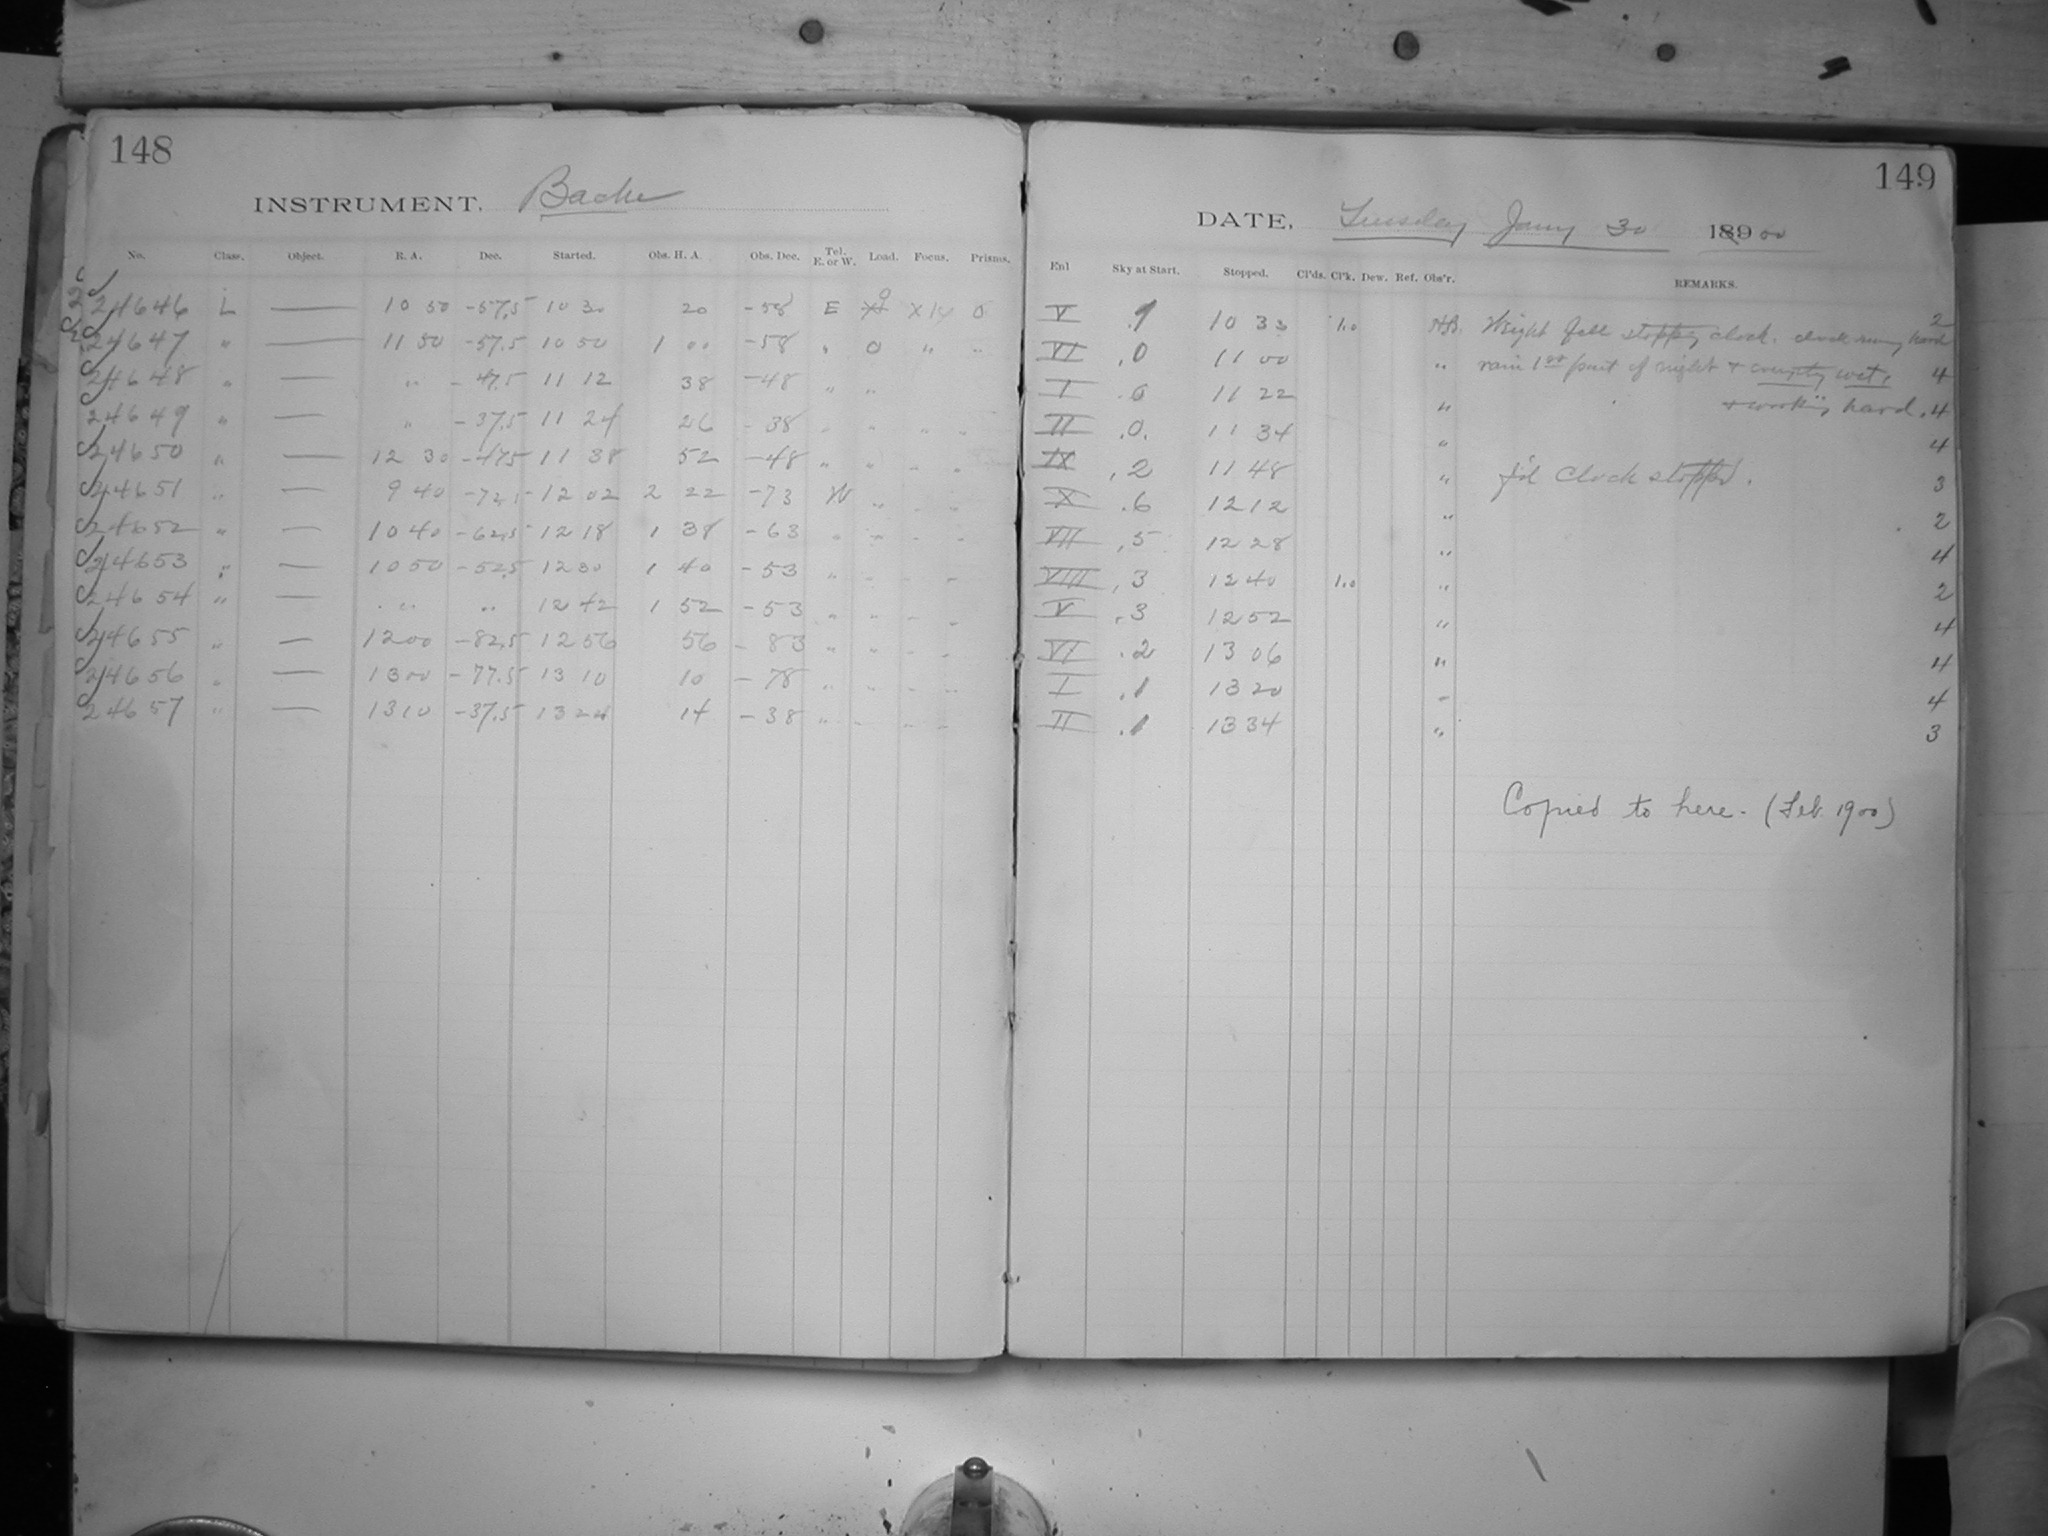 148
INSTRUMENT. Bache
No. Class. Object. R. A. Dec. Started. Obs. H. A. Obs. Dec. Tel. E. or W. Load. Focus. Prisms.
24646 L — 10 50 -57.5 10 30 20 -58 E 0 0
24647 " — 11 50 -57.5 10 50 1 00 -58 " 0 " "
24648 " — " -47.5 11 12 38 -48 " "
24649 " — " -37.5 11 24 26 -38 " " " "
24650 " — 12 30 -47.5 11 38 52 -48 " " " "
24651 " — 9 40 -72.5 12 02 2 22 -73 W " " "
24652 " — 10 40 -62.5 12 18 1 38 -63 " " " "
24653 " — 10 50 -52.5 12 30 1 40 -53 " " " "
24654 " — " " 12 42 1 52 -53 " " " "
24655 " — 12 00 -82.5 12 56 56 -83 " " " "
24656 " — 13 00 -77.5 13 10 10 -78 " " " "
24657 " — 13 10 -37.5 13 24 14 -38 " " " "
149
DATE, Tuesday Jany 30 1900
Enl Sky at Start. Stopped. Cl'ds. Cl'k. Dew. Ref. Obs'r. REMARKS.
V .1 10 33 1.0 Weight fell stopping clock. clock running hard 2
VI .0 11 00 " rain 1st part of night & everything wet, 4
I .0 11 22 " & working hard. 4
II .0. 11 34 " 4
IX .2 11 48 " f'd Clock stopped. 3
X .6 12 12 " 2
VII .5 12 28 " 4
VIII .3 12 40 1.0 " 2
V .3 12 52 " 4
VI .2 13 06 " 4
I .1 13 20 " 4
II .1 13 34 " 3
Copied to here. (Feb. 1900)